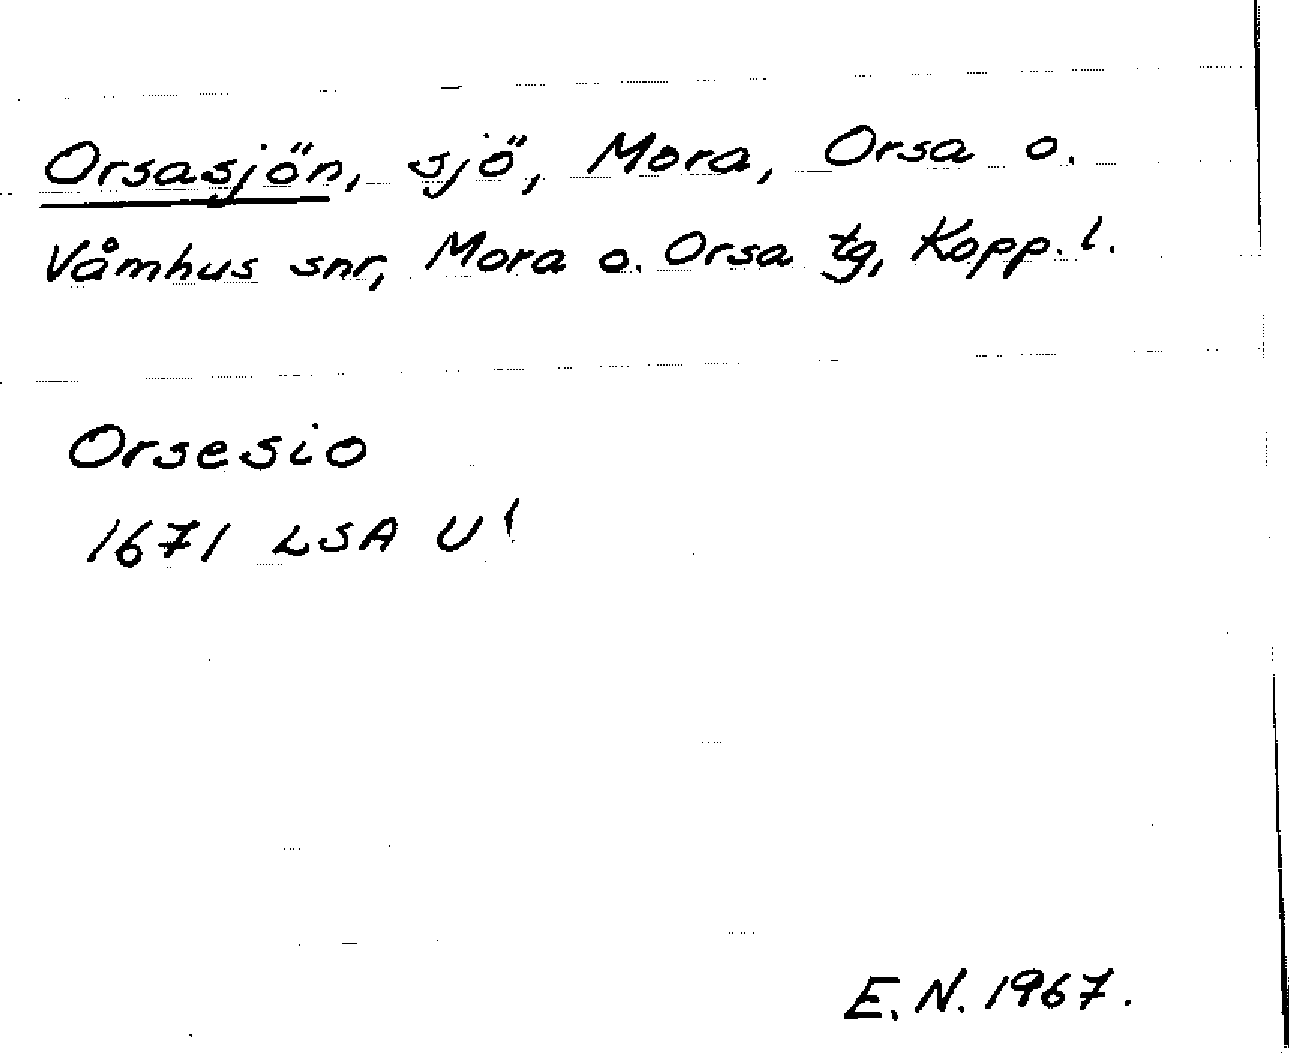 Orsasjön, sjö, Mora, Orsa o.
Våmhus snr, Mora o. Orsa tg, Kopp. l.
Orsesio
1671 LSA U¹
E. N. 1967.